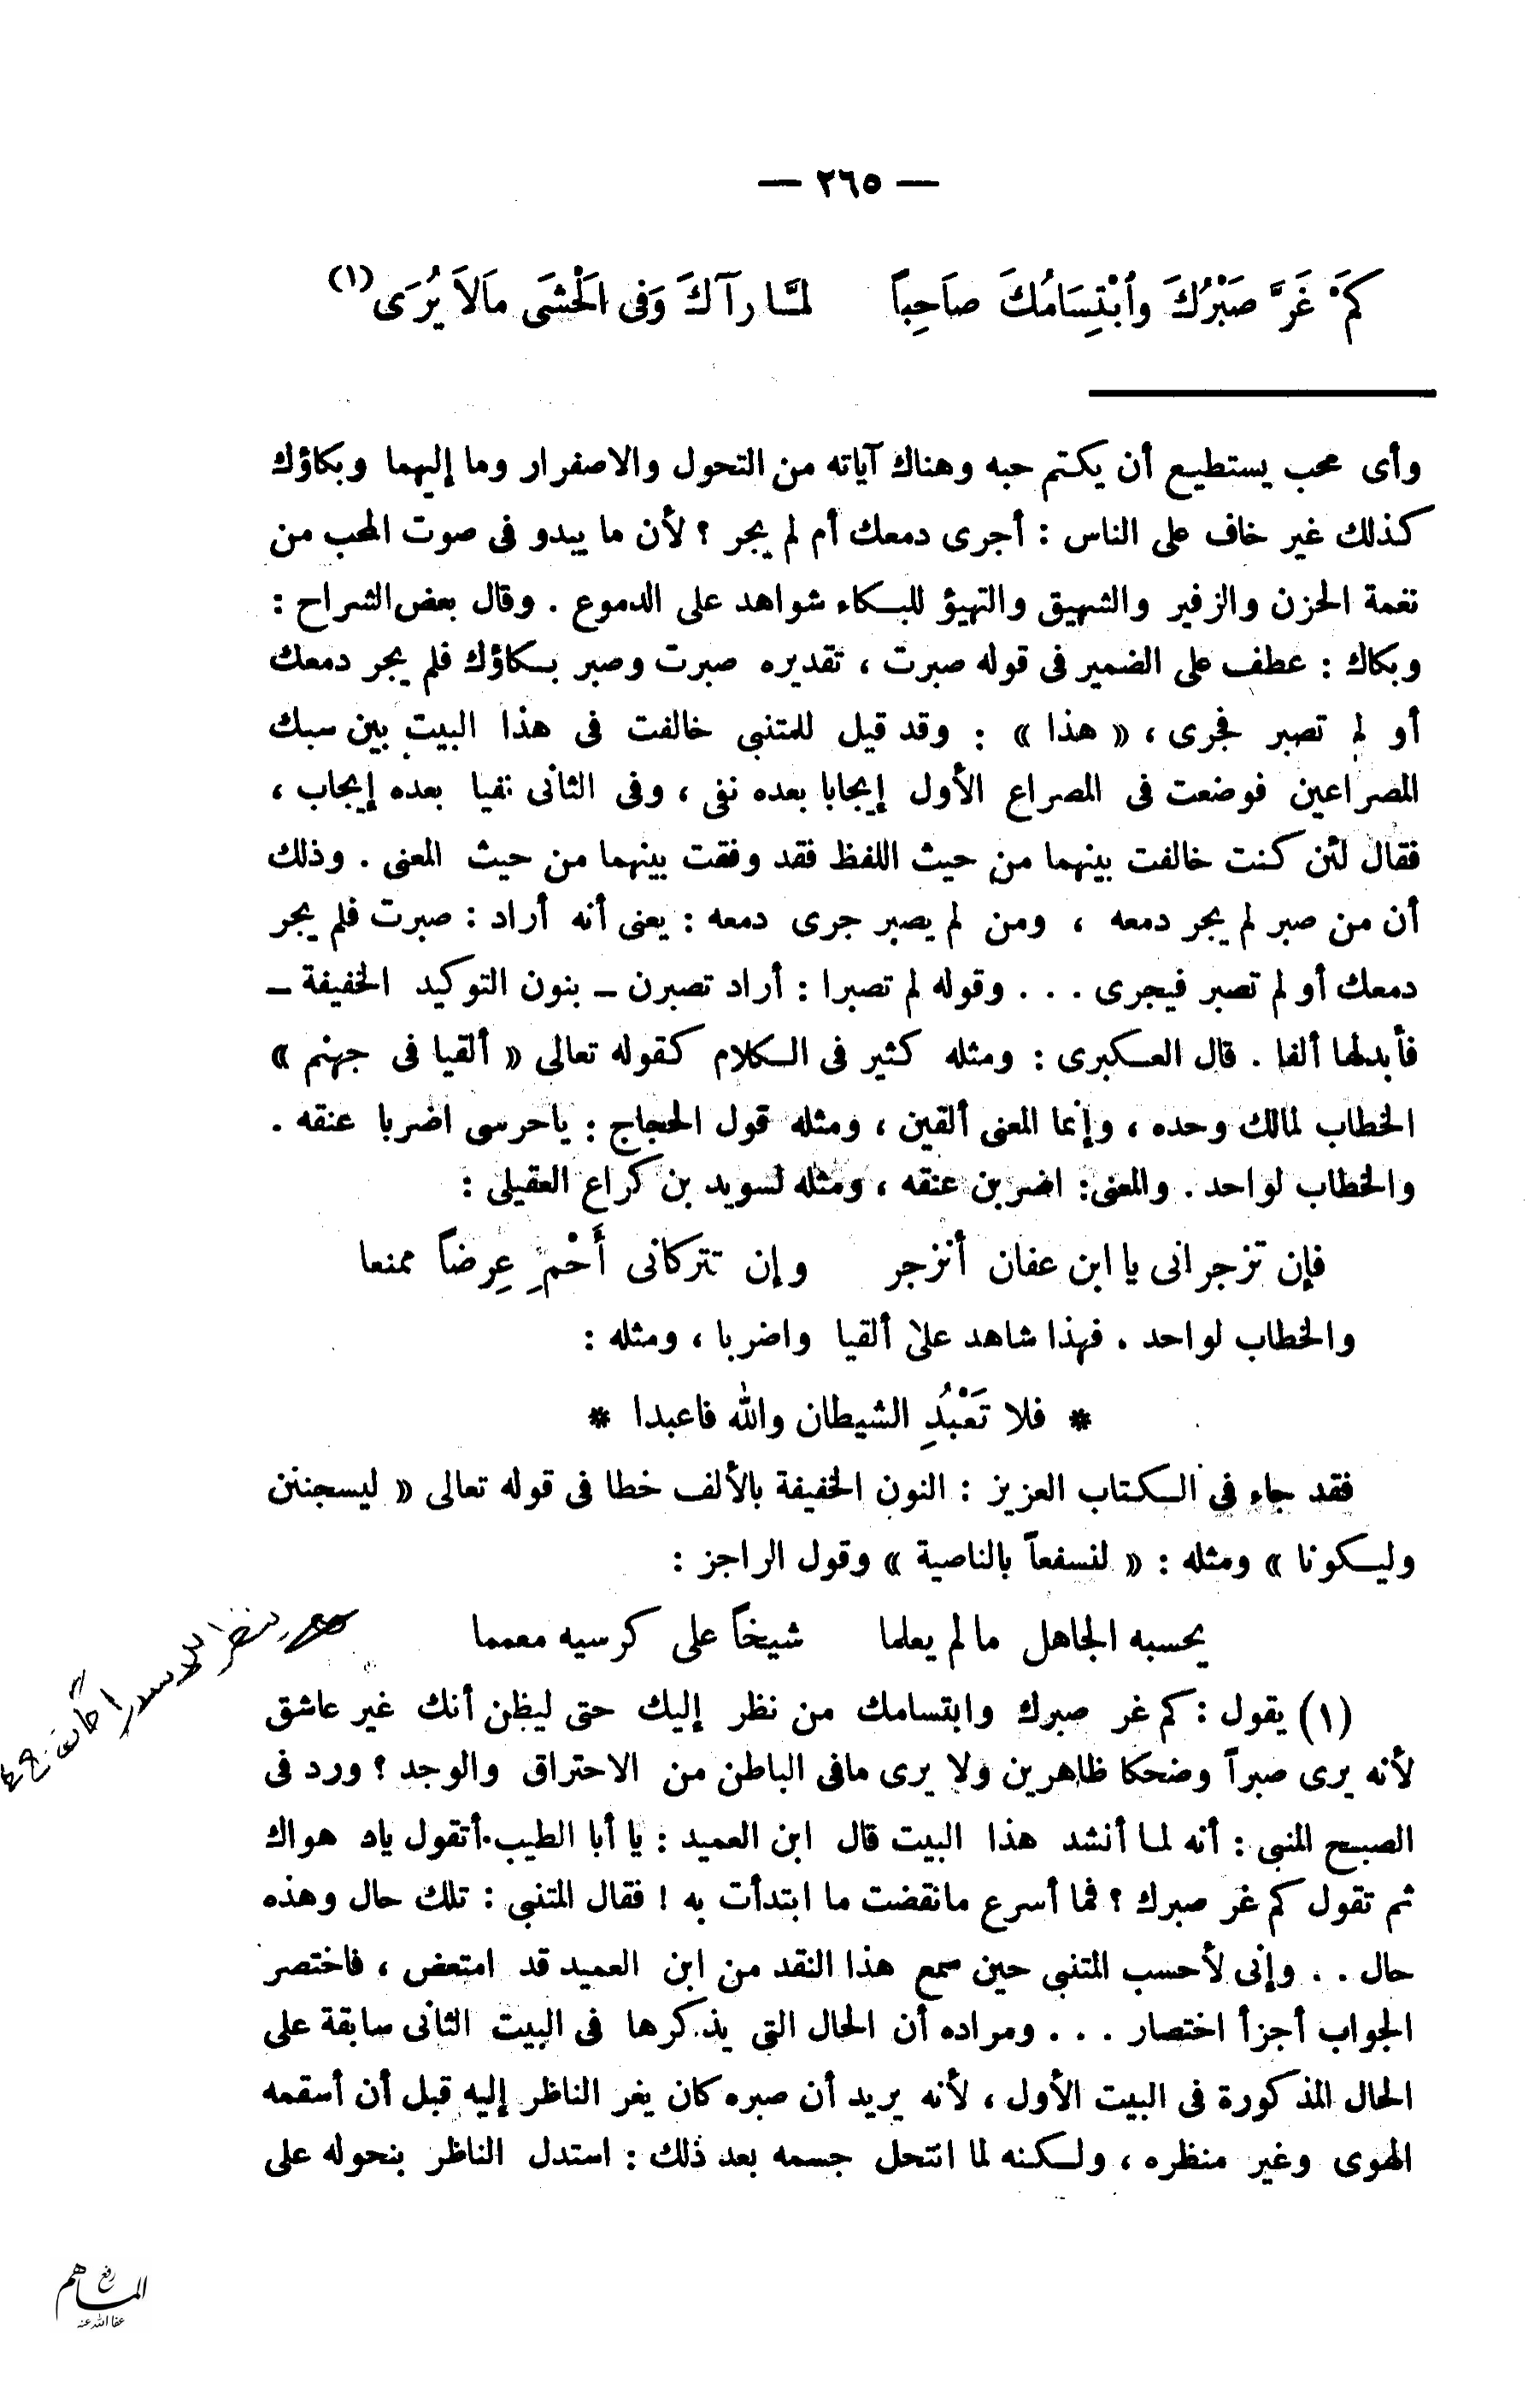 — ٢٦٥ —
كَمْ غَرَّ صَبْرُكَ وأبْتِسَامُكَ صاَحِباً لمَّا رآكَ وَفى الْحْشَى مَالاَ يُرَى (١)
وأى محب يستطيع أن يكتم حبه وهناك آياته من التحول والاصفرار وما إليهما وبكاؤك
كذلك غير خاف على الناس : أجرى دمعك أم لم يجر ؟ لأن ما يبدو فى صوت المحب من
نغمة الحزن والزفير والشهيق والتهيؤ للبكاء شواهد على الدموع . وقال بعض الشراح :
وبكاك : عطف على الضمير فى قوله صبرت ، تقديره صبرت وصبر بكاؤك فلم يجر دمعك
أو لم تصبر فجرى ، « هذا » : وقد قيل للمتنبى خالفت فى هذا البيت بين سبك
المصراعين فوضعت فى المصراع الأول إيجابا بعده نفى ، وفى الثانى نفيا بعده إيجاب ،
فقال لئن كنت خالفت بينهما من حيث اللفظ فقد وفقت بينهما من حيث المعنى . وذلك
أن من صبر لم يجر دمعه ، ومن لم يصبر جرى دمعه : يعنى أنه أراد : صبرت فلم يجر
دمعك أو لم تصبر فيجرى . . . وقوله لم تصبرا : أراد تصبرن ـ بنون التوكيد الخفيفة ـ
فأبدلها ألفا . قال العكبرى : ومثله كثير فى الكلام كقوله تعالى « ألقيا فى جهنم »
الخطاب لمالك وحده ، وإنما المعنى ألقين ، ومثله قول الحجاج : ياحرسى اضربا عنقه .
والخطاب لواحد . والمعنى : اضربن عنقه ، ومثله لسويد بن كراع العقيلى :
فإن تزجرانى يا ابن عفان أنزجر وإن تتركانى أَحْمِ عِرضاً ممنعا
والخطاب لواحد . فهذا شاهد على ألقيا واضربا ، ومثله :
* فلا تَعْبُدِ الشيطان والله فاعبدا *
فقد جاء فى الكتاب العزيز : النون الخفيفة بالألف خطا فى قوله تعالى « ليسجنن
وليكونا » ومثله : « لنسفعاً بالناصية » وقول الراجز :
يحسبه الجاهل مالم يعلما شيخاً على كرسيه معمما
(١) يقول : كم غر صبرك وابتسامك من نظر إليك حتى ليظن أنك غير عاشق
لأنه يرى صبراً وضحكا ظاهرين ولا يرى مافى الباطن من الاحتراق والوجد ؟ ورد فى
الصبح المنبى : أنه لما أنشد هذا البيت قال ابن العميد : يا أبا الطيب أتقول باد هواك
ثم تقول كم غر صبرك ؟ فما أسرع مانقضت ما ابتدأت به ! فقال المتنبى : تلك حال وهذه
حال . . وإنى لأحسب المتنبى حين سمع هذا النقد من ابن العميد قد امتعض ، فاختصر
الجواب أجزأ اختصار . . . ومراده أن الحال التى يذكرها فى البيت الثانى سابقة على
الحال المذكورة فى البيت الأول ، لأنه يريد أن صبره كان يغر الناظر إليه قبل أن أسقمه
الهوى وغير منظره ، ولكنه لما انتحل جسمه بعد ذلك : استدل الناظر بنحوله على
رفع
المساهم
عفا الله عنه